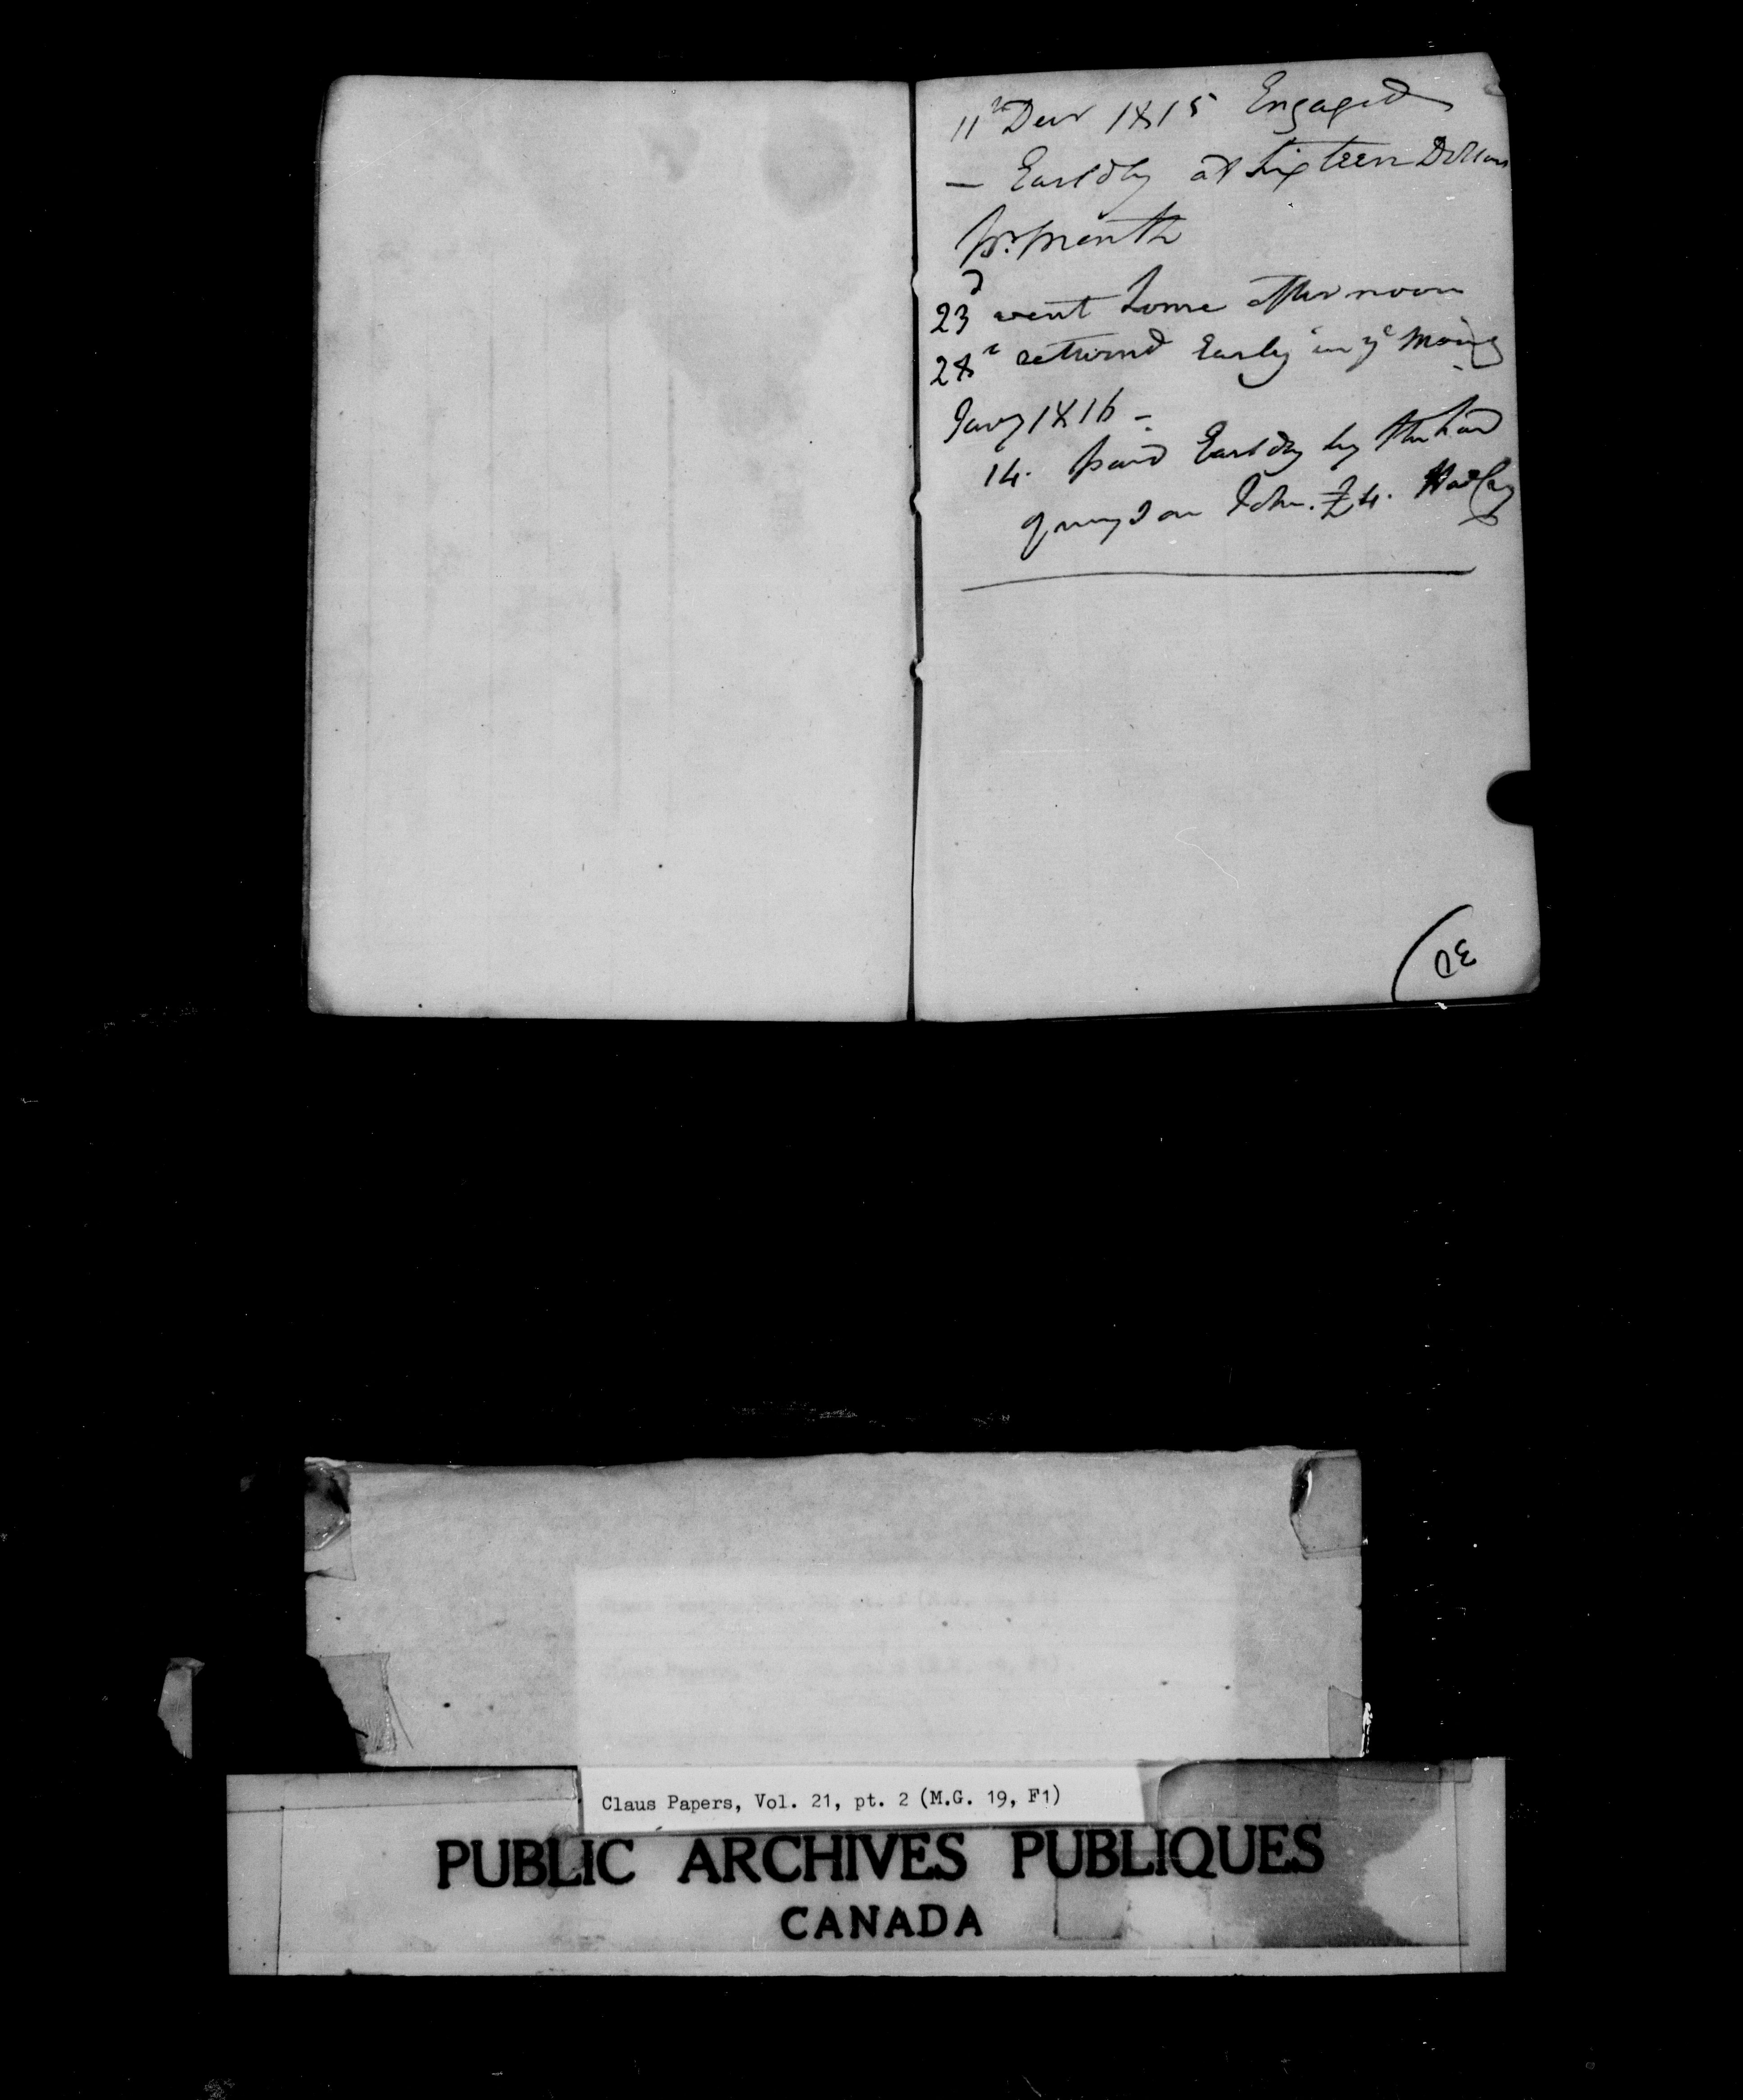 11th Decr 1815 Engaged
— Earl dly at Sixteen Dollars
pr. month
23d went home afternoon
28th returned Early in ye Morng
Jany 1816 -
14. paid Earl dly by the hand
of my Son John. £4.
30
Claus Papers, Vol. 21, pt. 2 (M.G. 19, F1)
PUBLIC ARCHIVES PUBLIQUES
CANADA